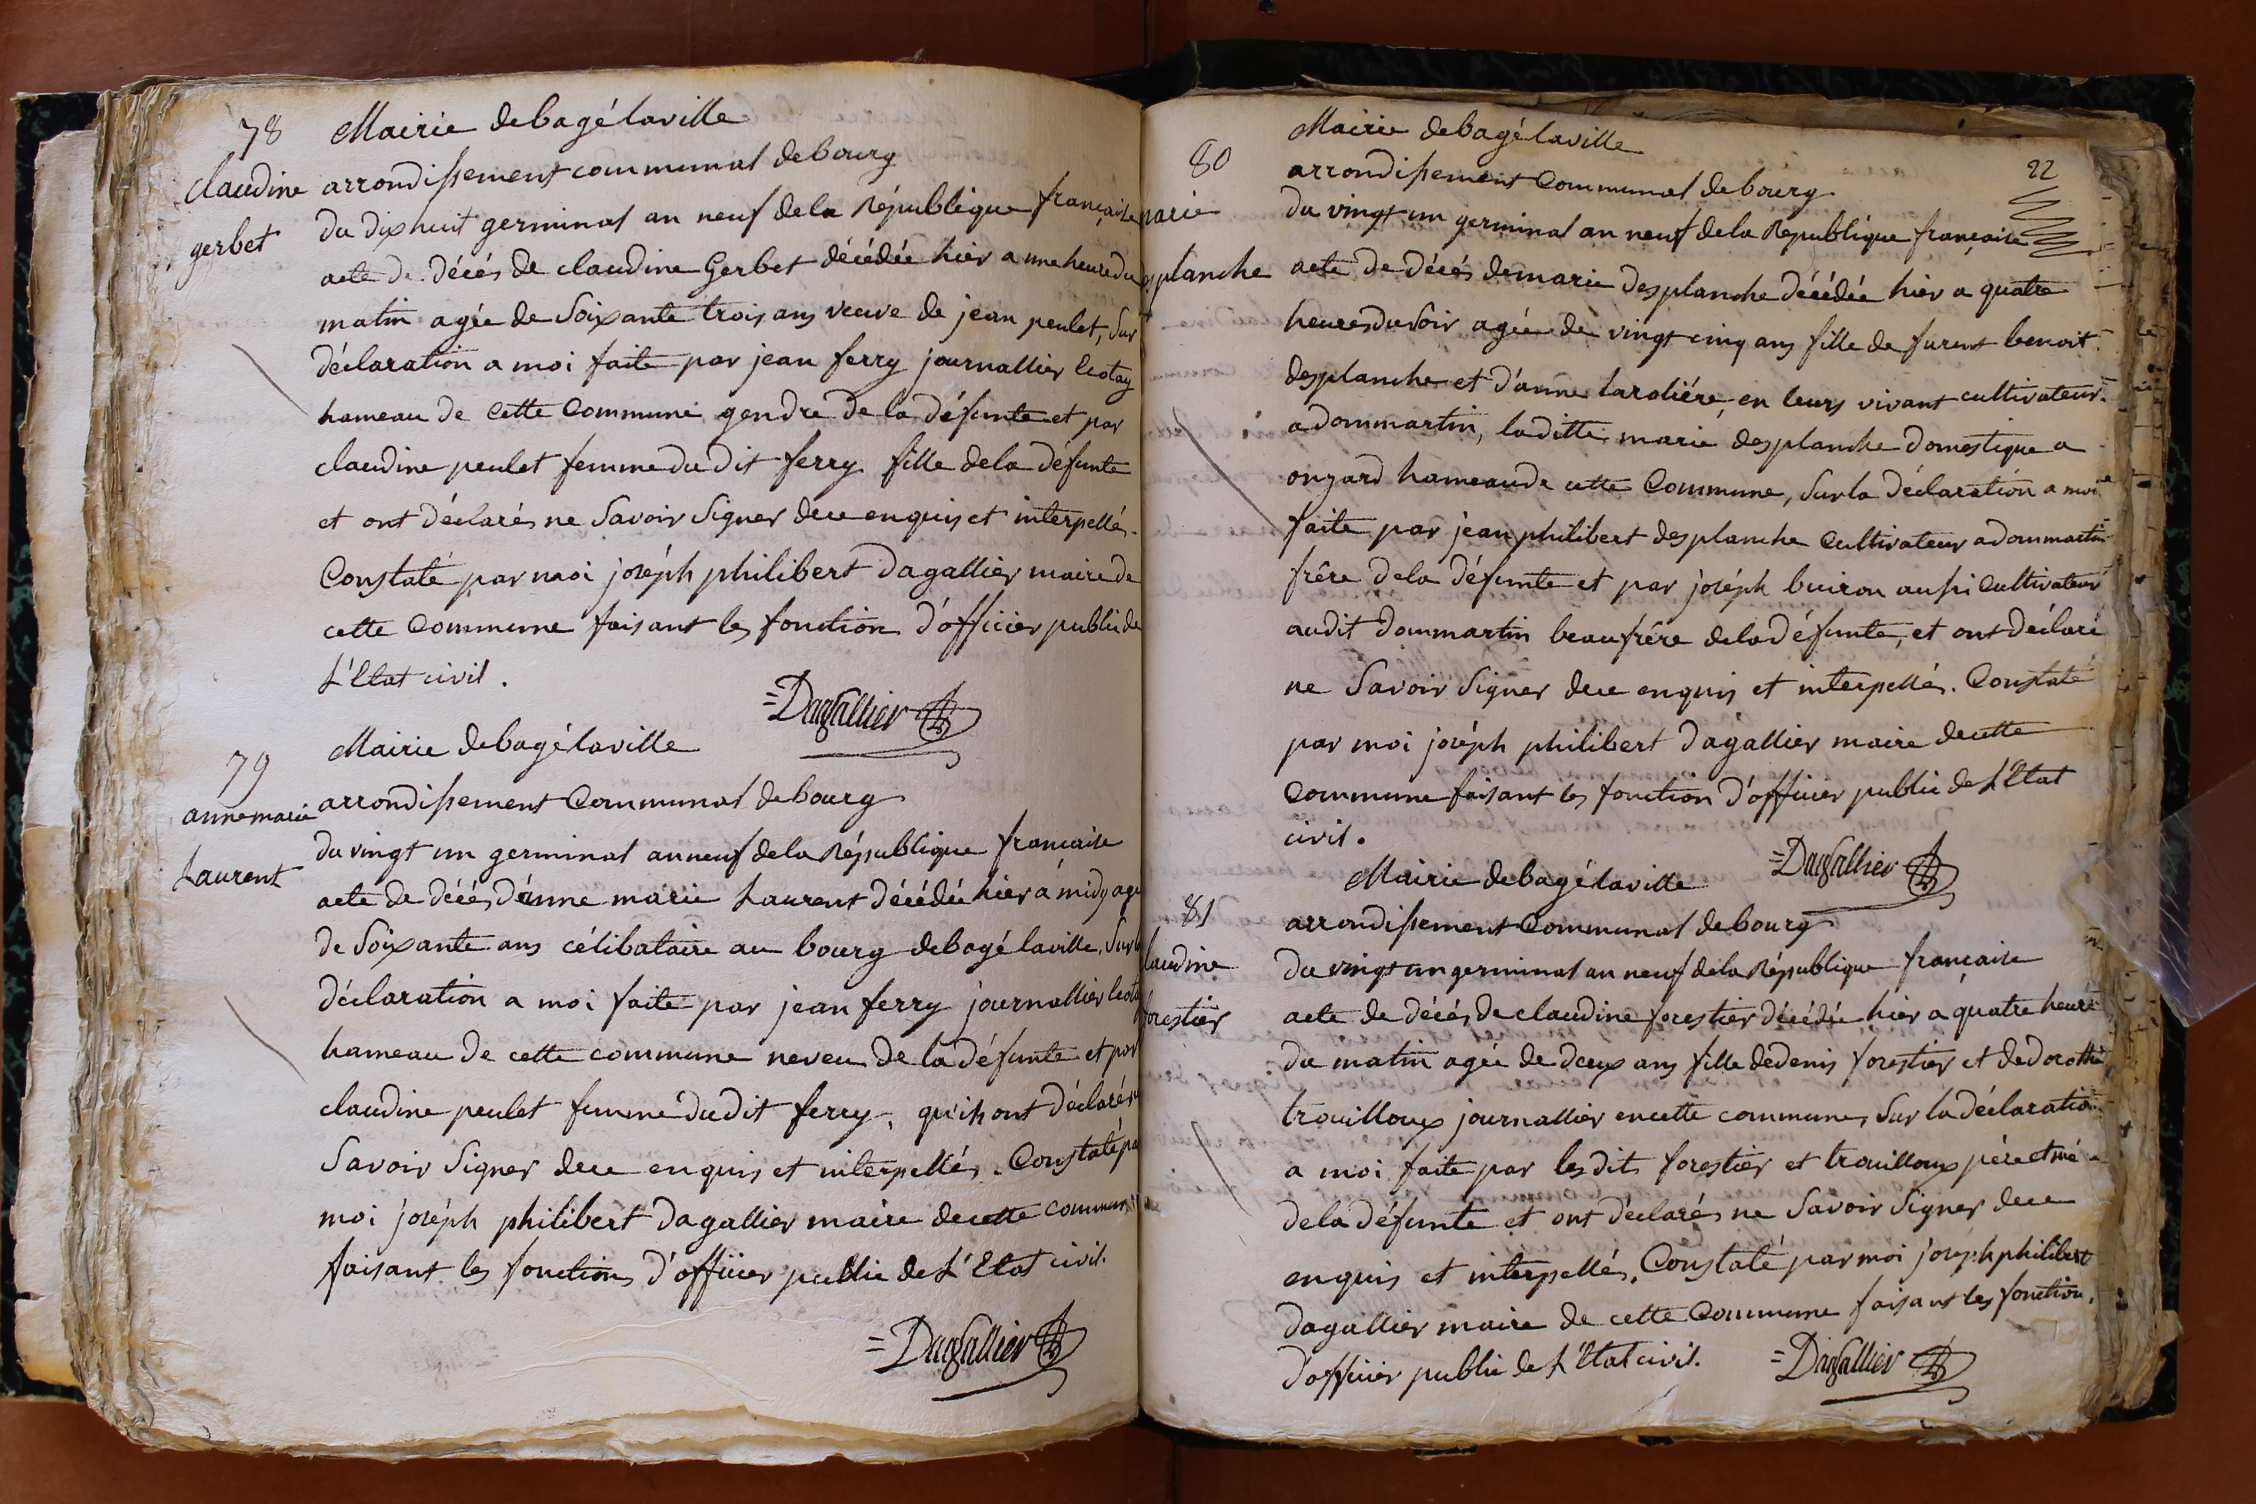 78
Claudine
gerbet
Mairie de bagé laville
arrondissement communal de bourg
du dix huit germinal an neuf de la République française
acte de décés de claudine Gerbet décédée hier a une heure du
matin agée de Soixante trois ans veuve de jean peulet, Sur
déclaration a moi faite par jean ferry journallier
hameau de cette Commune gendre de la défunte et par
claudine peulet femme du dit ferry fille de la défunte
et ont déclarés ne Savoir Signer de ce enquis et interpellés.
Constaté par moi joséph philibert dagallier maire de
cette Commune faisant les fonction d'officier public de
L'Etat civil.
=Dagallier
79
anne marie
Laurent
Mairie de bagé laville
arrondissement Communal de bourg
du vingt un germinal an neuf de la République française
acte de décés d'anne marie Laurent décédée hier á midy agé
de Soixante ans célibataire au bourg de bagé laville, Sur
déclaration a moi faite par jean ferry journallier
hameau de cette commune neveu de la défunte et par
claudine peulet femme du dit ferry, qu'ils ont déclarés
Savoir Signer de ce enquis et interpellés. Constaté pa
moi joséph philibert dagallier maire de cette commune
faisant les fonctions d'officier public de L'Etat civil.
=Dagallier
22
80
marie
desplanche
Mairie de bagé laville
arrondissement Communal de bourg
du vingt un germinal an neuf de la République française
acte de décés de marie desplanche décédée hier a quatre
heures du Soir agée de vingt cinq ans fille de furent benoit
desplanche et d'anne laroliére, en leurs vivant cultivateur
a dommartin, la ditte marie desplanche domestique a
onjard hameau de cette Commune, Sur la déclaration a moi
faite par jean philibert desplanche Cultivateur a dommartin
frêre de la défunte et par joséph buiron aussi Cultivateur
au dit dommartin beaufrêre de la défunte, et ont déclaré
ne Savoir Signer de ce enquis et interpellés. Constaté
par moi joséph philibert dagallier maire de cette
Commune faisant les fonction d'officier public de L'Etat
civil.
=Dagallier
81
laudine
forestier
Mairie de bagé laville
arrondissement Communal de bourg
du vingt un germinal an neuf de la République française
acte de décés de claudine forestier décédée hier a quatre heure
du matin agée de deux ans fille de denis forestier et de dorothé
trouilloux journallier en cette commune, Sur la déclaration
a moi faite par les dits forestier et trouilloux pére et mé
de la défunte et ont déclarés ne Savoir Signer de ce
enquis et interpellés. Constaté par moi joséph philibert
dagallier maire de cette Commune faisant les fonction
d'officier public de L'Etat civil.
=Dagallier